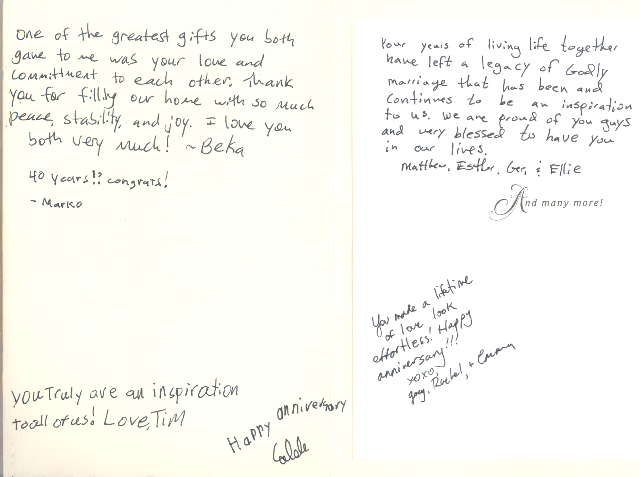 One of the greatest gifts you both
gave to me was your love and
committment to each other. Thank
you for filling our home with so much
peace, stability, and joy. I love you
both very much! ~Beka
40 years!? congrats!
- Marko
you Truly are an inspiration
to all of us! Love, Tim
Happy anniversary
Your years of living life together
have left a legacy of Godly
marriage that has been and
continues to be an inspiration
to us. We are proud of you guys
and very blessed to have you
in our lives.
Matthew, Esther, Ger, & Ellie
And many more!
You made a lifetime
of love look
effortless! Happy
anniversary!!!
xoxo,
Rachel, +